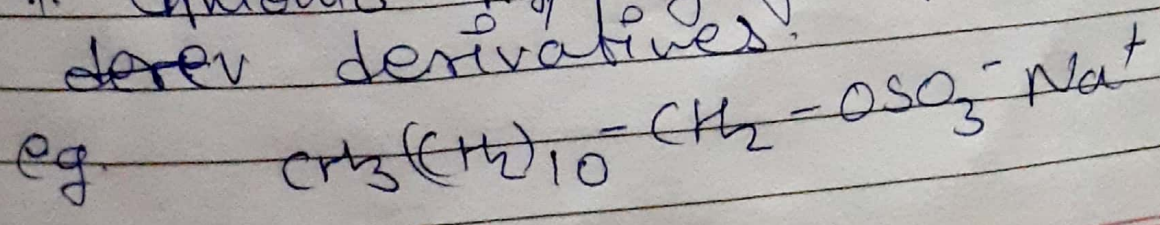 derev derivatives.
eg. CH3(CH2)10-CH2-OSO3⁻Na⁺